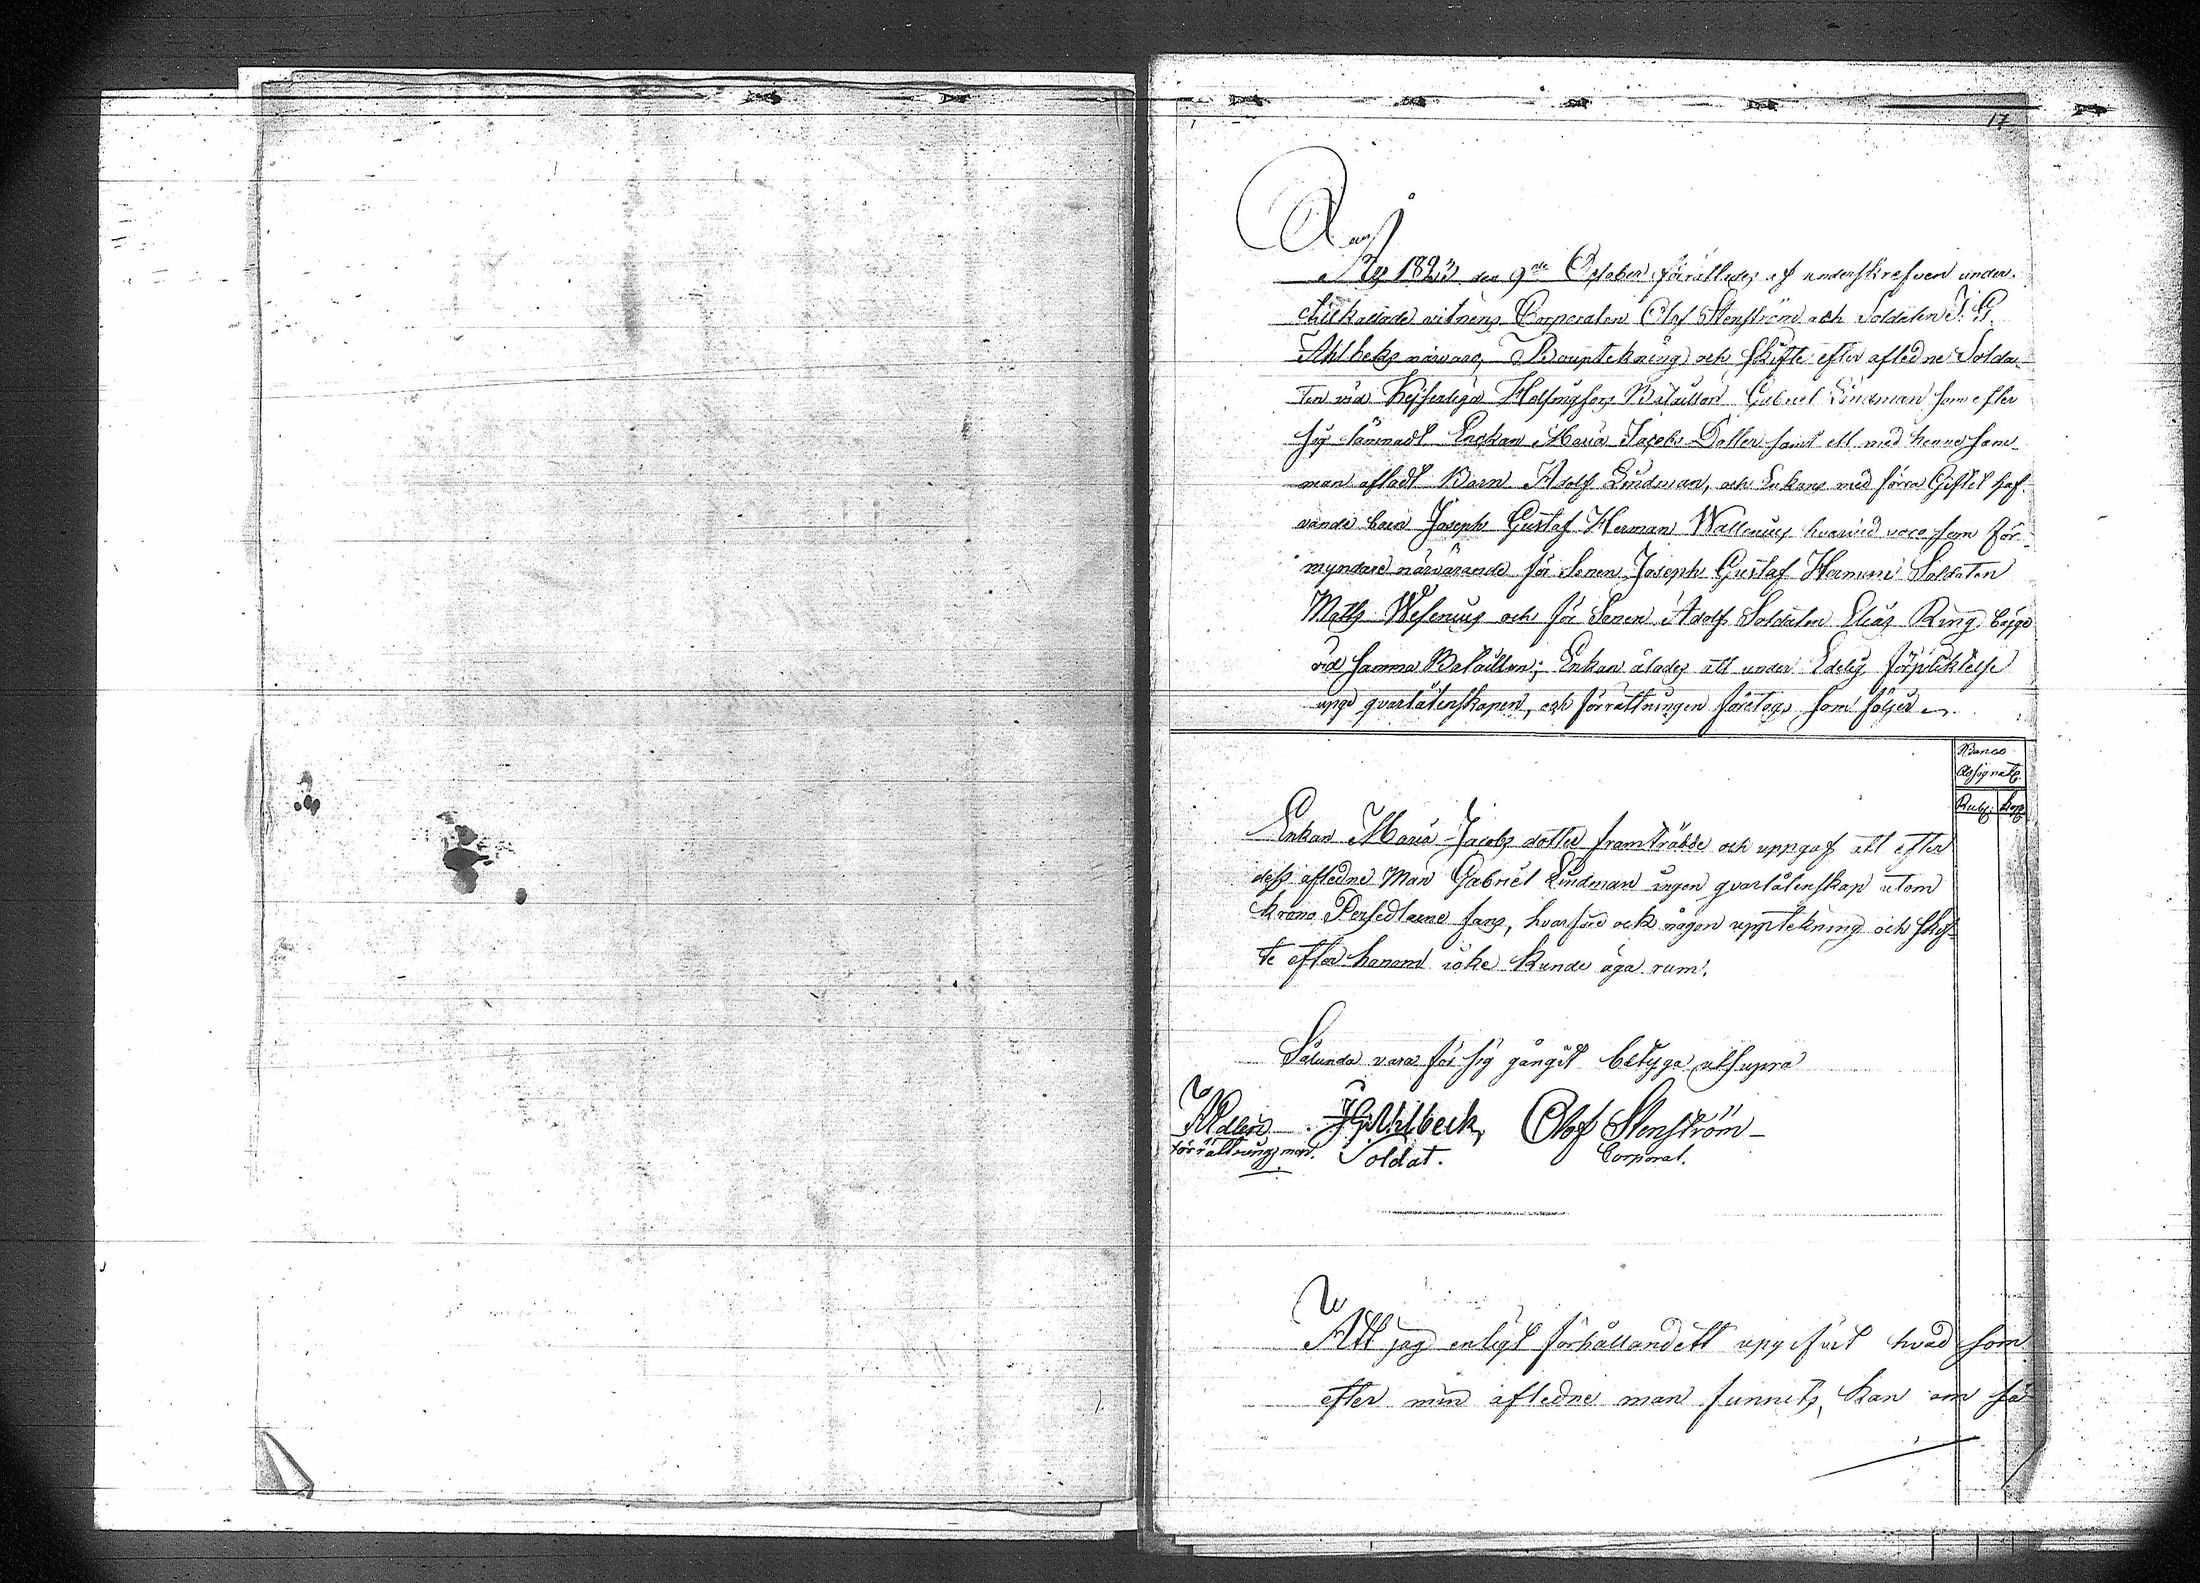 17.
Åhr 1823 den 9de October förrättades af underskrefven under
tillkallade vitnens Corporalen Olof Stenström och Soldaten J. G.
Ahlbeks närvaro, Bouptekning och skifte efter afledne Solda-
ten vid Kejserliga Helsingfors Bataillon Gabriel Lindman som efter
sig lämnadt Enckan Maria Jacobs Dotter samt ett med henne sam-
man afladt Barn Adolf Lindman, och Enkans med förra Giftet haf-
vande barn Joseph Gustaf Herman Wallenius hvarvid voro som för-
myndare närvarande för Sonen Joseph Gustaf Herman Soldaten
Matts Wesenius och för Sonen Adolf Soldaten Elias Ring bägge
vid samma Bataillon; Enkan ålades att under Edelig förpliktelse
upge qvarlåtenskapen, och förrättningen företogs som följer
Banco
Assignatr.
Rubl: Kop:
Enkan Maria Jacobs dotter framträdde och uppgaf att efter
dess afledne Man Gabriel Lindman ingen qvarlåtenskap utom
Krono Persedlarne fans, hvarföre ock någon upptekning och skif-
te efter honom icke kunde äga rum.
Sålunda vara för sig gångit betyga utsupra
Förrättnings man.
J G Ahlbeck,
Soldat.
Olof Stenström
Corporal.
Att jag enligt förhållandett upgifvit hvad som
efter min afledne man funnits, kan om så